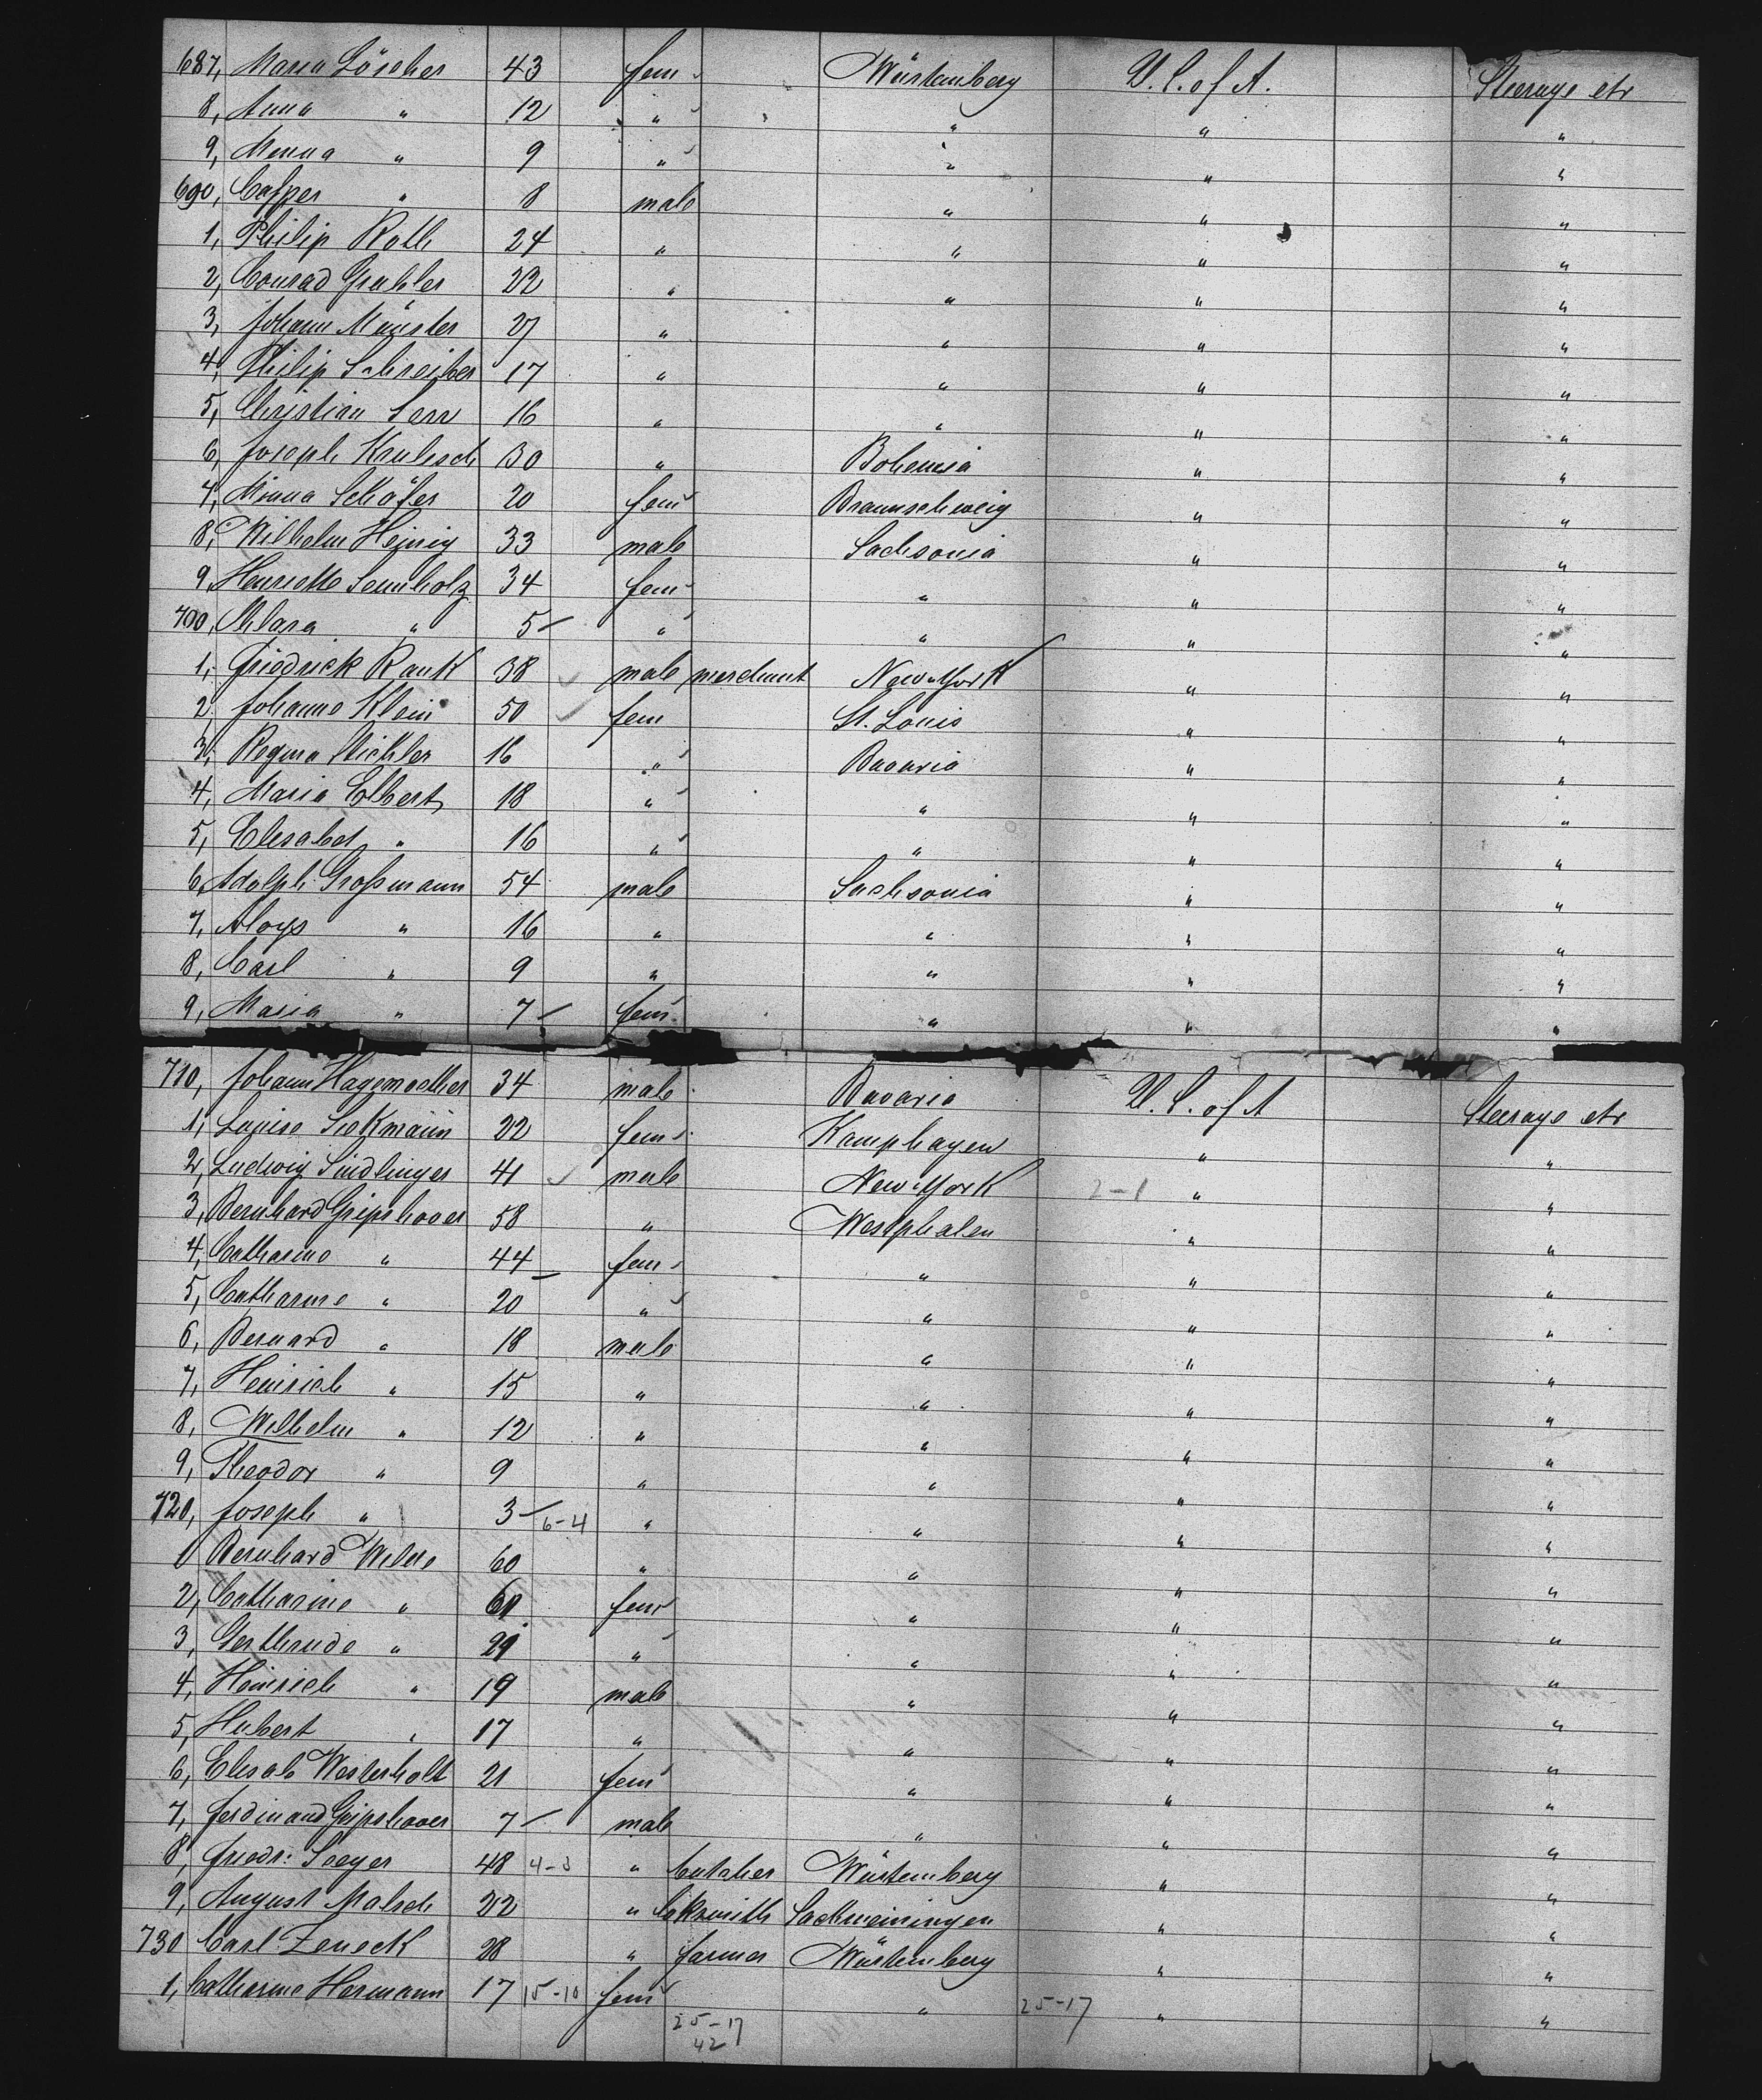 687, Maria Löscher 43 fem Würtemberg U.S. of A. Steerage etr
8, Anna " 12 " " " "
9, Minna " 9 " " " "
690, Casper " 8 male " " "
1, Philip Roth 24 " " " "
2, Conrad Grubler 22 " " " "
3, Johann Münster 27 " " " "
4, Philip Schreiber 17 " " " "
5, Christian Serr 16 " " " "
6, Joseph Krulisch 30 " Bohemia " "
7, Minna Schäfer 20 fem Braunschweig " "
8, Wilhelm Heinig 33 male Sachsonia " "
9, Henriette Sennholz 34 fem " " "
700, Clara " 5 " " " "
1, Friedrick Rauk 38 male merchant New-York " "
2, Johanne Klein 50 fem St. Louis " "
3, Regina Stichler 16 " Bavaria " "
4, Maria Colbert 18 " " " "
5, Elesabet " 16 " " " "
6, Adolph Großmann 54 male Sachsonia " "
7, Aloys " 16 " " " "
8, Carl " 9 " " " "
9, Maria " 7 fem " " "
710, Johann Hagemoelher 34 male Bavaria U.S. of A Steerage etr
1, Luise Siekmann 22 fem Kamphagen " "
2, Ludwig Sindlinger 41 male New-York 2-1 " "
3, Bernhard Gripshover 58 " Westphalen " "
4, Catharine " 44 fem " " "
5, Catharine " 20 " " " "
6, Bernard " 18 male " " "
7, Heinrich " 15 " " " "
8, Wilhelm " 12 " " " "
9, Theodor " 9 " " " "
720, Joseph " 3 6-4 " " " "
1 Bernhard Welte 60 " " " "
2, Catharine " 60 fem " " "
3, Gerthrude " 21 " " " "
4, Heinrich " 19 male " " "
5, Hubert " 17 " " " "
6, Elesab Westerholt 21 fem " " "
7, Ferdinand Gripshover 7 male " " "
8, Friedr: Seeger 48 4-3 " butcher Würtemberg " "
9, August Malsch 22 " loksmith Sachmeiningen " "
730 Carl Zeneck 28 " farmer Würtemberg " "
1, Catharine Hermann 17 15-10 fem " 25-17 " "
25-17
42